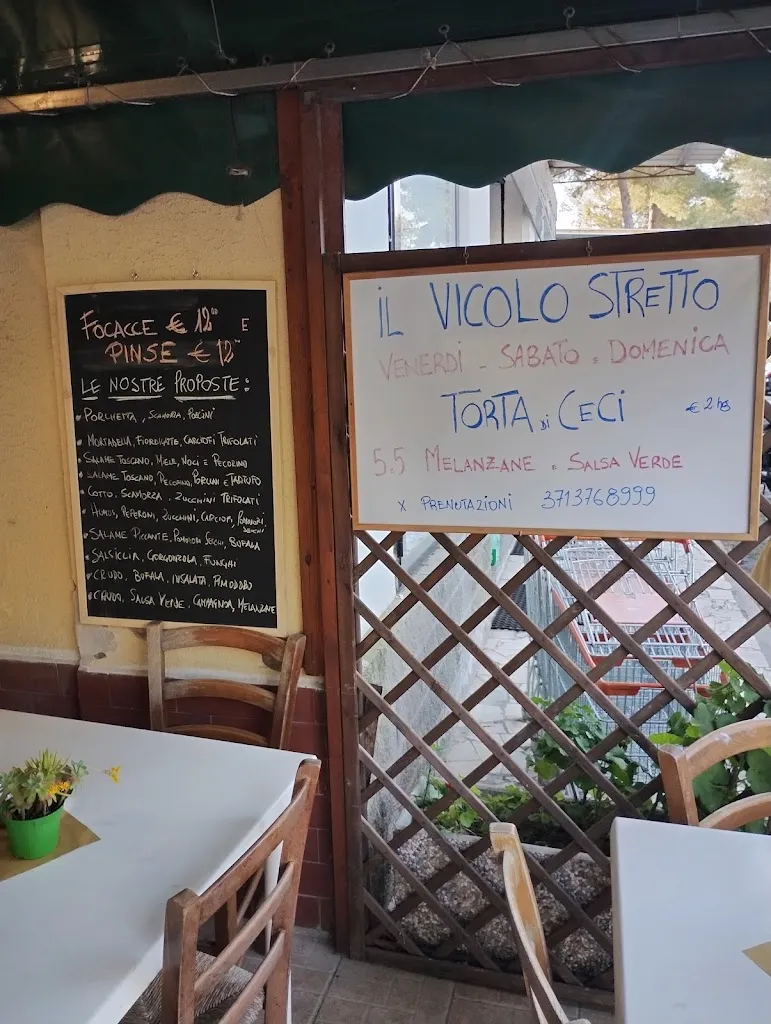 FOCACCE € 12,00 E
PINSE € 12,00
LE NOSTRE PROPOSTE:
PORCHETTA, SCAMORZA, PORCINI
MORTADELLA, FIORDILATTE, CARCIOFI TRIFOLATI
SALAME TOSCANO, MIELE, NOCI E PECORINO
SALAME TOSCANO, PECORINO, PORCINI E TARTUFO
COTTO, SCAMORZA, ZUCCHINI TRIFOLATI
HUMUS, PEPERONI, ZUCCHINI, CARCIOFI, POMODORI SECCHI
SALAME PICCANTE, POMODORI SECCHI, BUFALA
SALSICCIA, GORGONZOLA, FUNGHI
CRUDO, BUFALA, INSALATA, POMODORO
CRUDO, SALSA VERDE, MELANZANE
IL VICOLO STRETTO
VENERDÌ - SABATO - DOMENICA
TORTA di CECI
5.5 MELANZANE e SALSA VERDE
X PRENOTAZIONI 3713768999